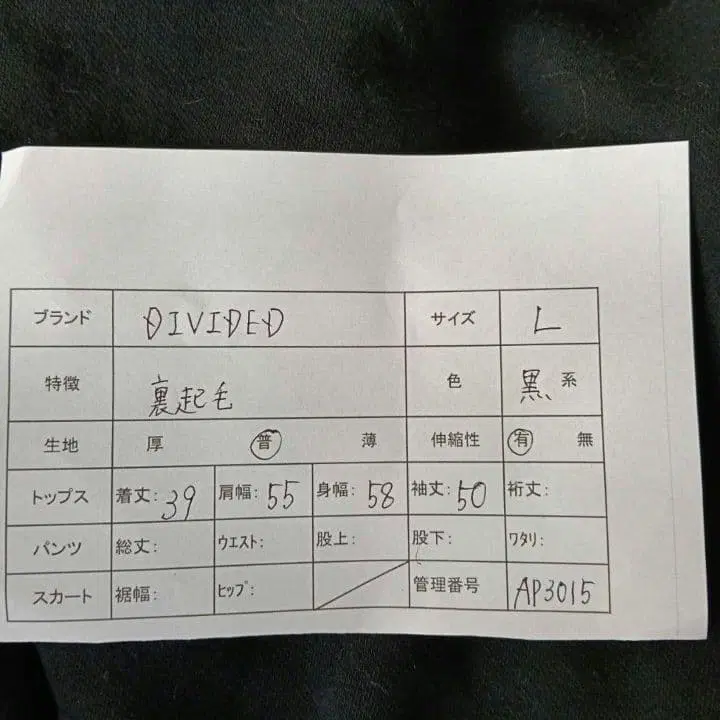 ブランド DIVIDED サイズ L
特徴 裏起毛 色 黒 系
生地 厚 普 薄 伸縮性 有 無
トップス 着丈: 39 肩幅: 55 身幅: 58 袖丈: 50 裄丈:
パンツ 総丈: ウエスト: 股上: 股下: ワタリ:
スカート 裾幅: ヒップ: 管理番号 AP3015